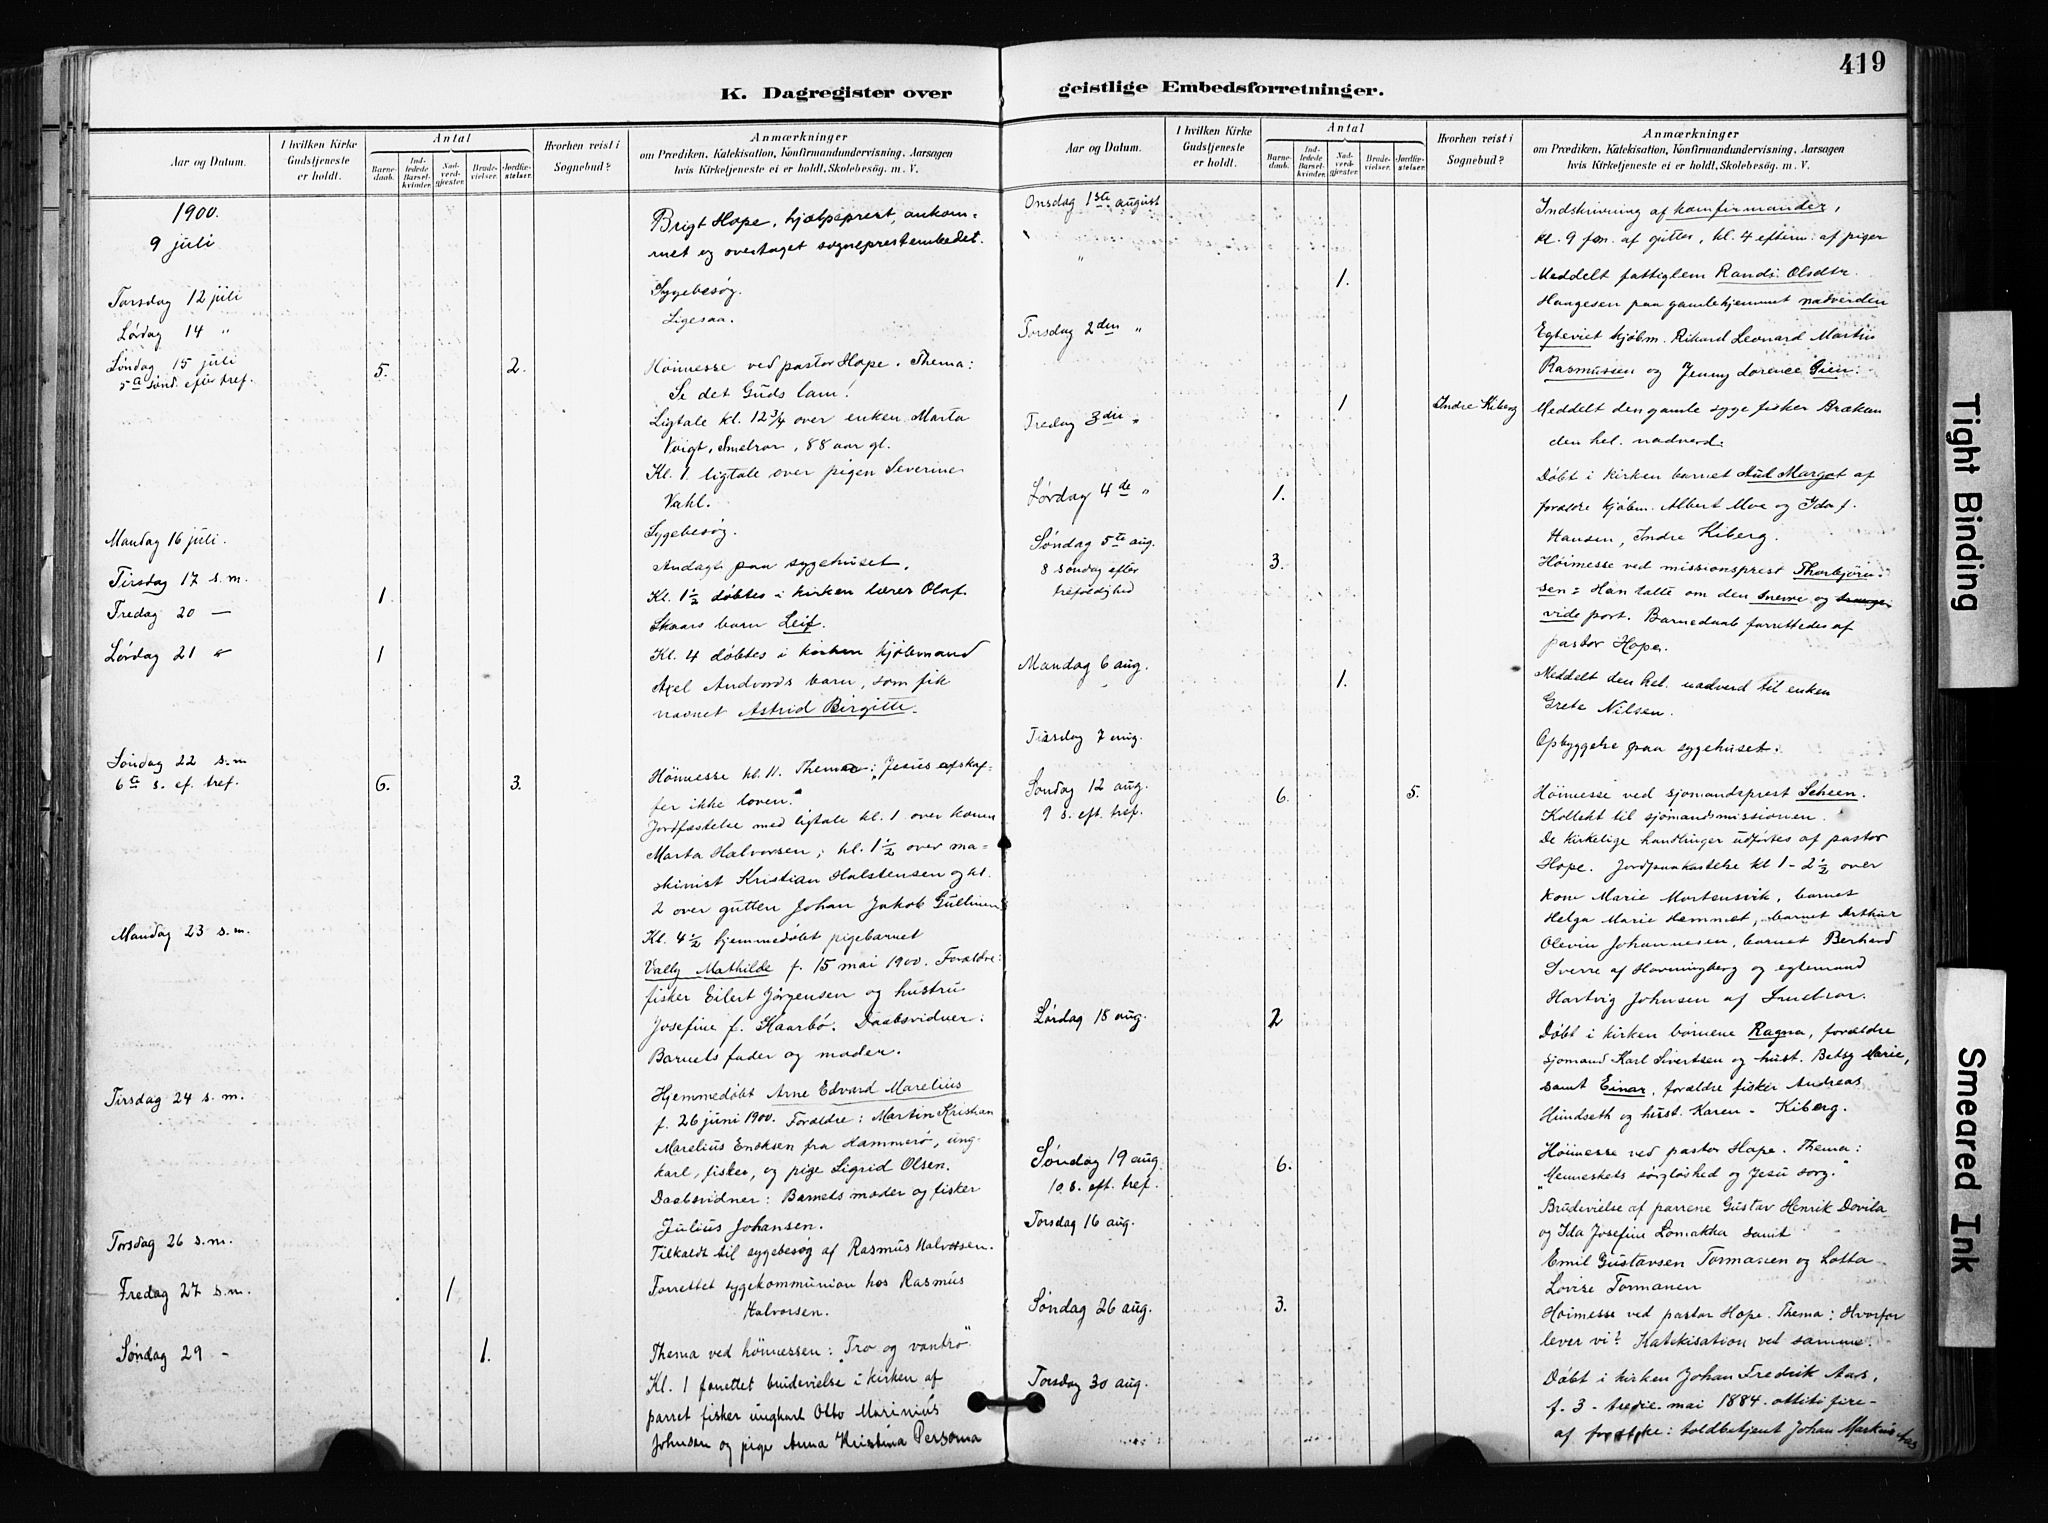 419
K. Dagregister over geistlige Embedsforretninger.
Aar og Datum.
I hvilken Kirke Gudstjeneste er holdt.
Antal
Barne-daab.
Ind-ledede Barsel-kvinder.
Nad-verd-gjester.
Brude-vielser.
Jordfæ-stelser.
Hvorhen reist i Sognebud?
Anmærkninger
om Prædiken, Katekisation, Konfirmandundervisning, Aarsagen
hvis Kirketjeneste ei er holdt, Skolebesøg. m. V.
1900.
9 juli
Brigt Hope, hjælpeprest, ankom-
met og overtaget sogneprestembedet.
Torsdag 12 juli
Sygebesøg.
Lørdag 14 "
Ligesaa.
Søndag 15 juli 5. 2. Høimesse ved pastor Hope. Thema:
5te sønd. efter tref.
Se det Guds lam!
Ligtale kl. 12 3/4 over enken Marta
Voigt, Smelror, 88 aar gl.
Kl. 1 ligtale over pigen Severine
Vahl.
Mandag 16 juli. Sygebesøg.
Tirsdag 17 s.m. Andagt paa sygehuset.
Fredag 20 — 1 Kl. 1 1/2 døbtes i kirken lærer Olaf
Skaars barn Leif.
Lørdag 21 " 1 Kl. 4 døbtes i kirken kjøbmand
Axel Andvords barn, som fik
navnet Astrid Birgitte.
Søndag 22 s.m
6te s. ef. tref. 6. 3. Høimesse kl. 11. Thema: "Jesus afskaf-
fer ikke loven."
Jordfæstelse med ligtale kl. 1 over konen
Marta Halvorsen; kl. 1 1/2 over ma-
skinist Kristian Halstensen og kl.
2 over gutten Johan Jakob
Mandag 23 s.m. Kl. 4 1/2 hjemmedøbt pigebarnet
Vally Mathilde f. 15 mai 1900. Forældre:
fisker Eilert Jørgensen og hustru
Josefine f. Haarbø. Daabsvidner:
Barnets fader og moder.
Tirsdag 24 s.m. Hjemmedøbt Arne Edvard Marelius
f. 26 juni 1900. Forældre: Martin Kristian
Marelius fra Hammerø, ung-
karl, fisker, og pige Sigrid Olsen.
Daabsvidner: Barnets moder og fisker
Julius Johansen.
Torsdag 26 s.m. Tilkaldt til sygebesøg af Rasmus Halvorsen.
Fredag 27 s.m. 1 Forrettet sygekommunion hos Rasmus
Halvorsen.
Søndag 29 - 1. Thema ved høimessen: "Tro og vantro"
Kl. 1 forrettet brudevielse i kirken af
parret fisker ungkarl Otto Marinius
Johnsen og pige Anna Kristina Persona
Aar og Datum.
I hvilken Kirke Gudstjeneste er holdt.
Antal
Barne-daab.
Ind-ledede Barsel-kvinder.
Nad-verd-gjester.
Brude-vielser.
Jordfæ-stelser.
Hvorhen reist i Sognebud?
Anmærkninger
om Prædiken, Katekisation, Konfirmandundervisning, Aarsagen
hvis Kirketjeneste ei er holdt, Skolebesøg. m. V.
Onsdag 1ste august Indskrivning af konfirmander,
kl. 9 fm. af gutter, kl. 4 efterm. af piger
" 1. Meddelt fattiglem Randi Olsdtr.
Haagesen paa gamlehjemmet nadverden
Torsdag 2den " Egteviet kjøbm. Rikard Leonard Martin
Rasmussen og Jenny Lorence Gien.
Fredag 3die " 1 Indre Kiberg Meddelt den gamle syge fisker Brækan
den hel. nadverd.
Lørdag 4de " 1. Døbt i kirken barnet Aul Margot af
forældre kjøbm. Albert Moe og Ida f.
Hansen, Indre Kiberg.
Søndag 5te aug.
8 søndag efter
trefoldighed
3. Høimesse ved missionsprest Thorbjørn-
sen. Han talte om den snevre og
vide port. Barnedaab forrettedes af
pastor Hope.
Mandag 6 aug. 1. Meddelt den hel. nadverd til enken
Grete Nilsen.
Tirsdag 7 aug. Opbyggelse paa sygehuset.
Søndag 12 aug. 6. 5. Høimesse ved sjømandsprest Scheen.
9 s. eft. tref. Kollekt til sjømandsmissionen.
De kirkelige handlinger udførtes af pastor
Hope. Jordpaakastelse kl 1-2 1/2 over
kone Marie Mortensvik, barnet
Helga Marie Hemmet, barnet Arthur
Olevin Johannesen, barnet Berhard
Sverre af Havningberg og egtemand
Hartvig Johnsen af Smelror.
Lørdag 18 aug. 2 Døbt i kirken børnene Ragna, forældre
sjømand Karl Sivertsen og hust. Betsy Marie,
samt Einar, forældre fisker Andreas
Hundseth og hust. Karen - Kiberg.
Søndag 19 aug. 6. Høimesse ved pastor Hope. Thema:
10 s. eft. tref. "Menneskets sørgløshed og Jesu sorg."
Torsdag 16 aug. Brudevielse af parrene Gustav Henrik Dovila
og Ida Josefine Lomakka samt
Emil Gustavsen Tormanen og Lotta
Lovise Tormanen
Søndag 26 aug. 3. Høimesse ved pastor Hope. Thema: Hvorfor
lever vi? Katekisation ved samme.
Torsdag 30 aug. Døbt i kirken Johan Fredrik Aas,
f. 3 - tredie - mai 1884 - ottiti fire -
af forældre: toldbetjent Johan Markus Aas
Tight Binding
Smeared Ink